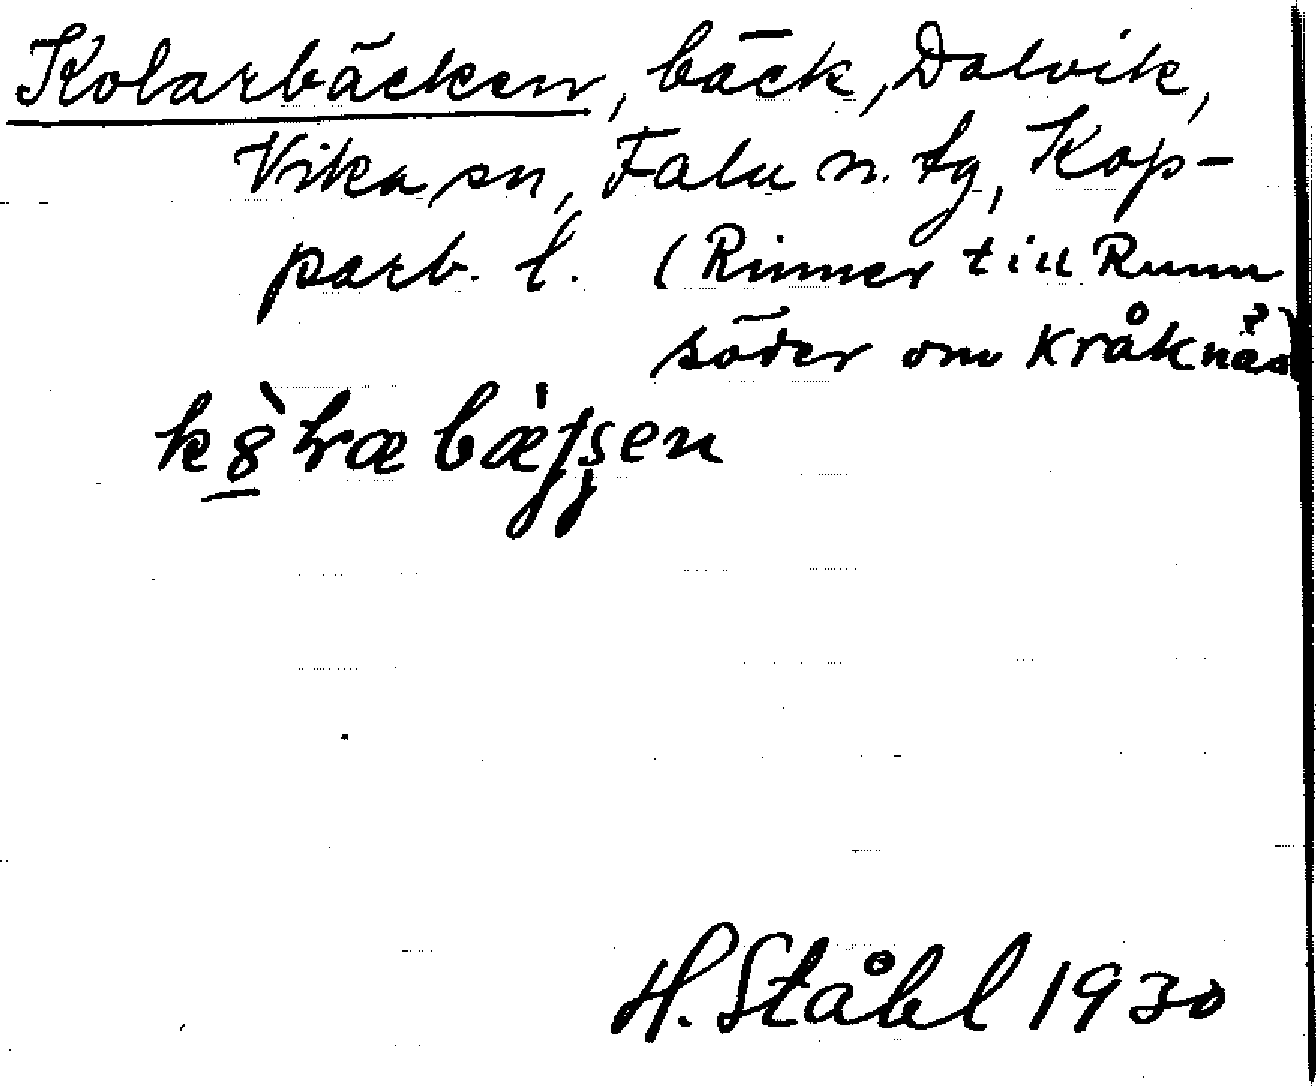 Kolarbäcken, bäck, Dalvik,
Vika sn, Falu n. tg, Kop-
parb. l. (Rinner till Runn
söder om Kråknäs)
H. Ståhl 1930